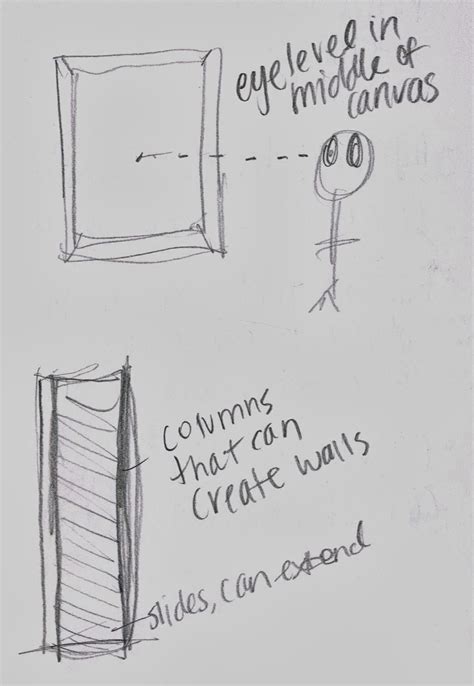 eye level in
middle of
canvas
columns
that can
create walls
slides, can extend